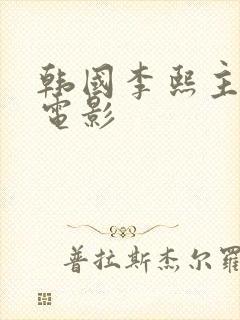 韩國李熙主
電影
普拉斯杰尔羅